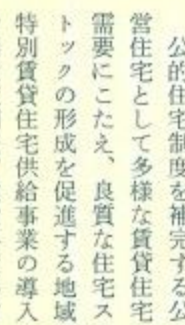 公的住宅制度を補完する公
営住宅として多様な賃貸住宅
需要にこたえ、良質な住宅ス
トックの形成を促進する地域
特別賃貸住宅供給事業の導入